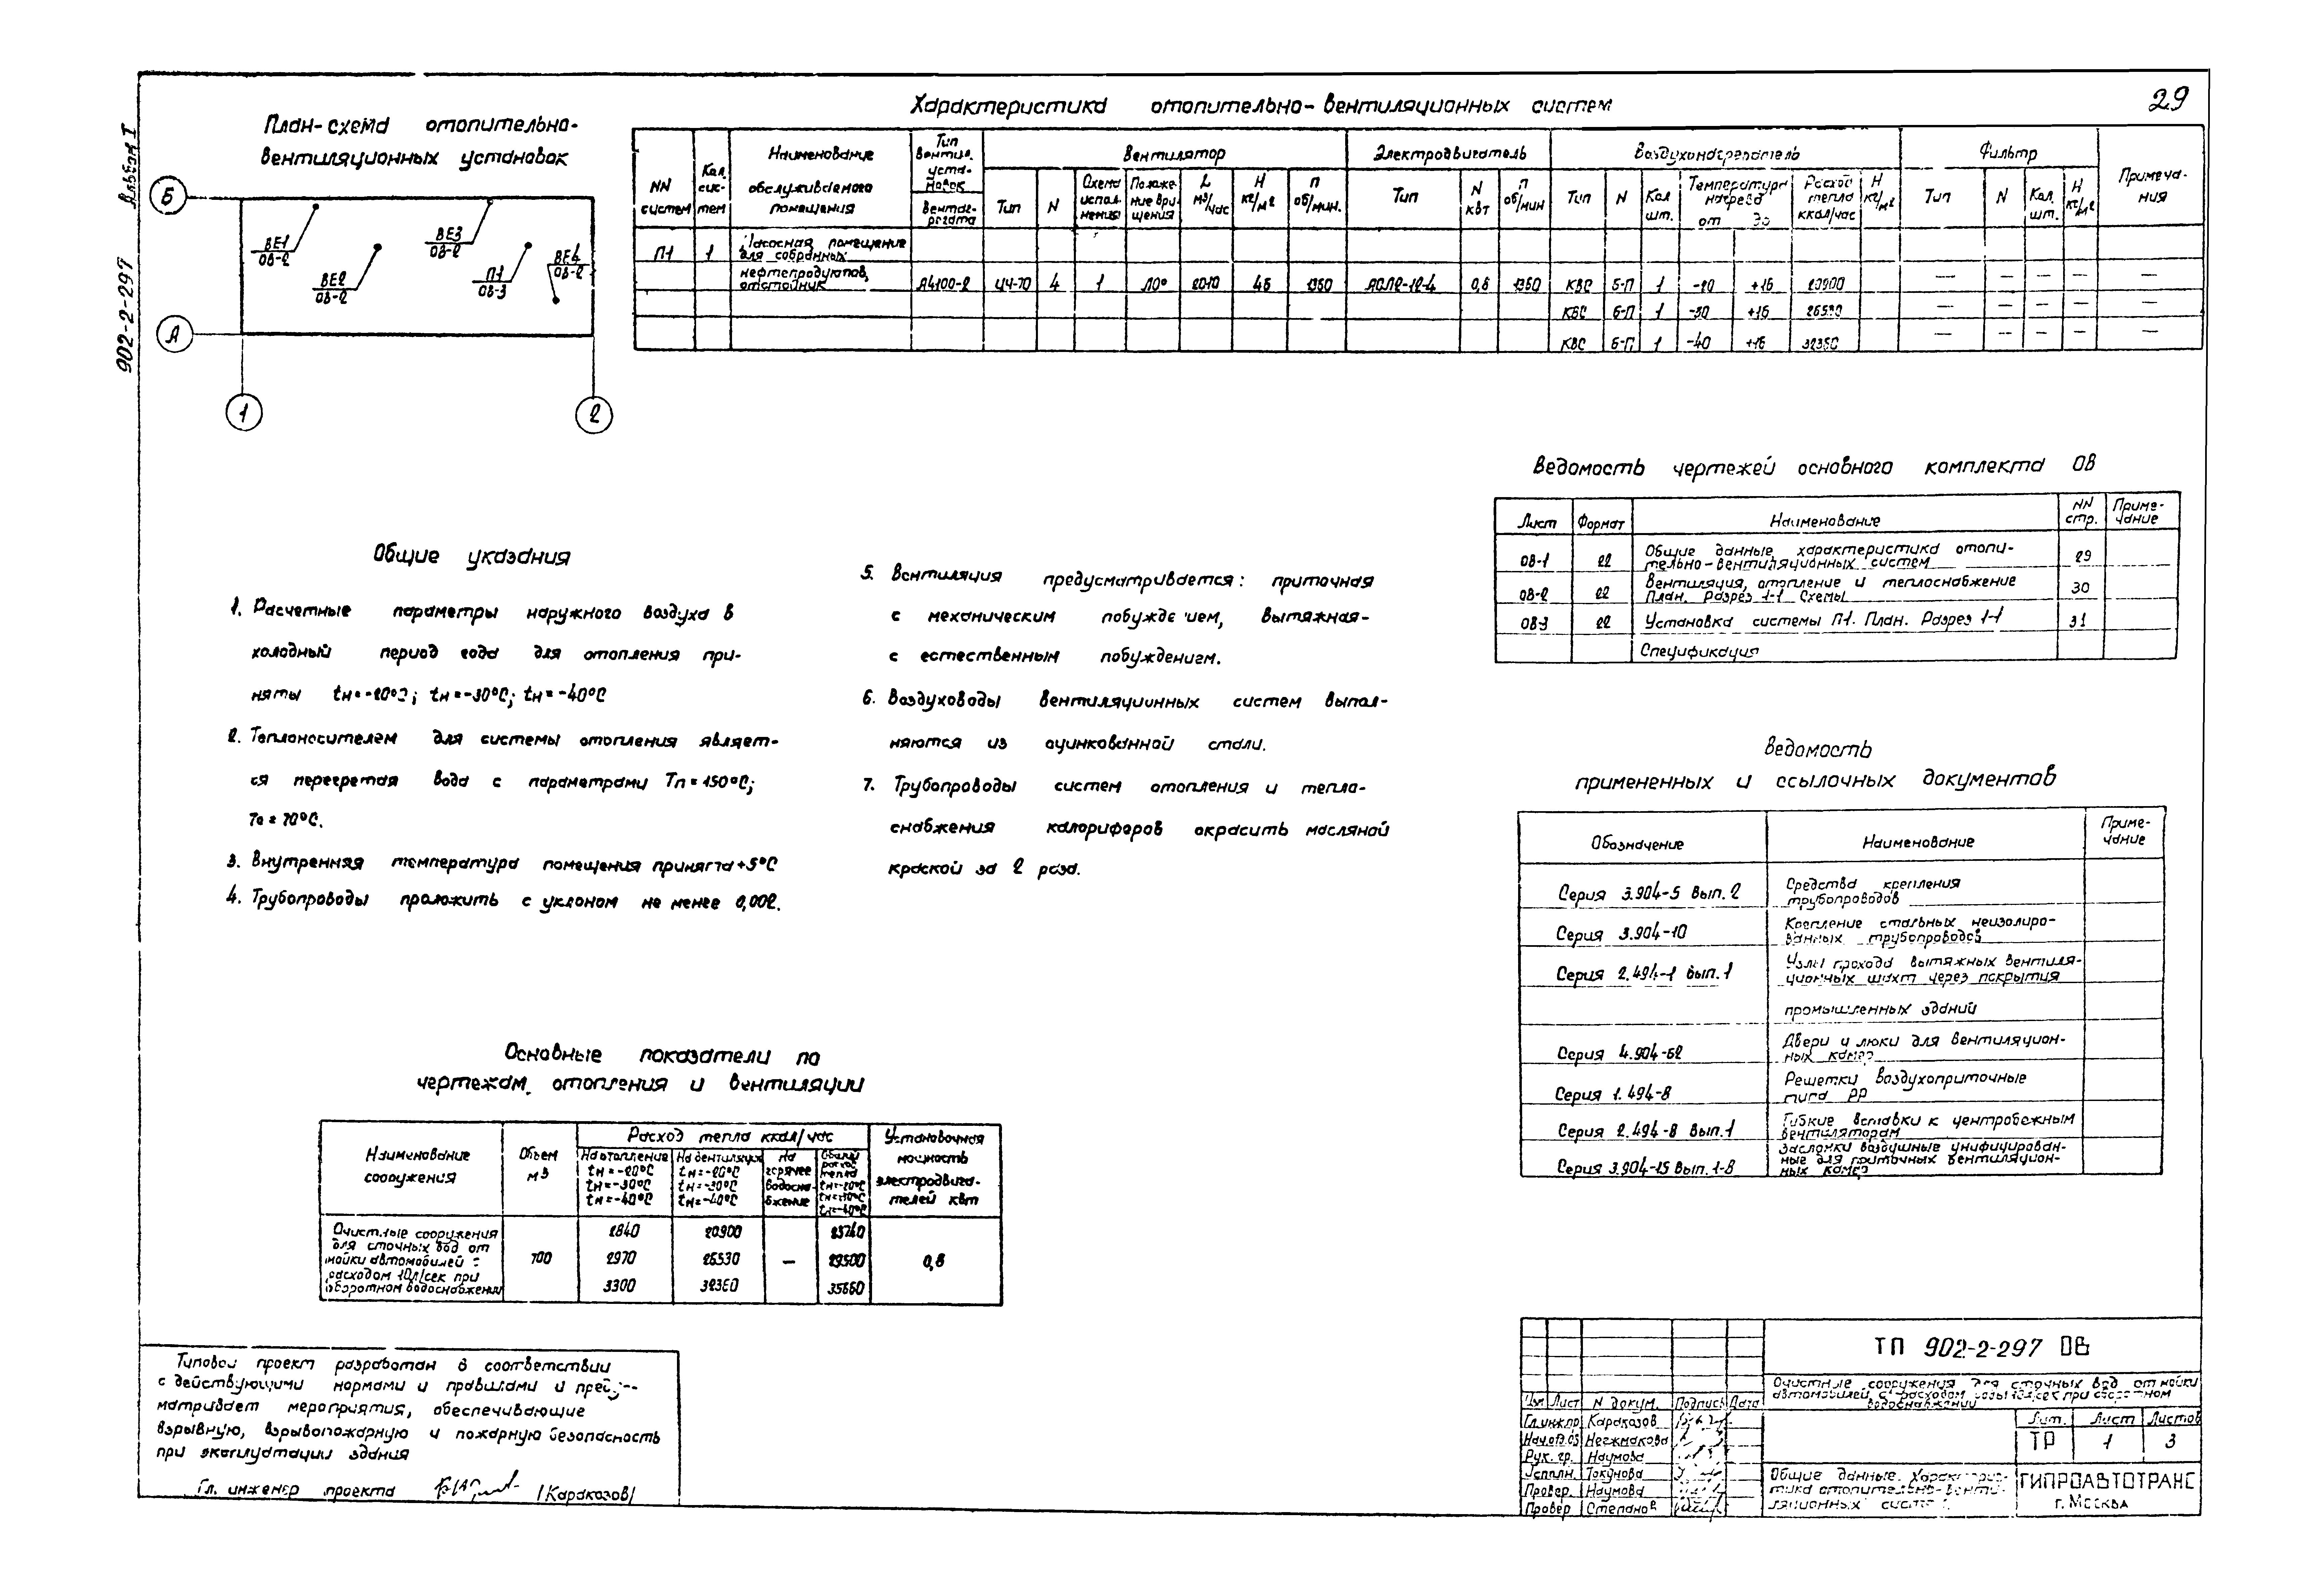 29
Альбом I
902-2-297
План-схема отопительно-
вентиляционных установок
Б
А
1
2
ВЕ1
ОВ-2
ВЕ2
ОВ-2
ВЕ3
ОВ-2
П1
ОВ-3
ВЕ4
ОВ-2
Характеристика отопительно-вентиляционных систем
NN систем
Кол. сис-тем
Наименование обслуживаемого помещения
Тип вентил. уста-новок
Вентаг-регата
Вентилятор
Тип N Схема испол-нения Положе-ние вра-щения L м3/час Н кг/м2 п об/мин.
Электродвигатель
Тип N квт п об/мин
Воздухонагреватель
Тип N Кол шт. Температура нагрева от до Расход тепла ккал/час Н кг/м2
Фильтр
Тип N Кол. шт. Н кг/м2
Примеча-ния
П1 1 Насосная помещение
для собранных
нефтепродуктов,
отстойник А4100-2 Ц4-70 4 1 Л0° 2010 45 1350 АОЛ2-12-4 0,8 1350 КВС 6-П 1 -20 +16 20900 — — — — —
КВС 6-П 1 -30 +16 26530 — — — — —
КВС 6-П 1 -40 +16 32360 — — — — —
Ведомость чертежей основного комплекта ОВ
Лист Формат Наименование NN стр. Приме-чание
ОВ-1 22 Общие данные, характеристика отопи-
тельно-вентиляционных систем 29
ОВ-2 22 Вентиляция, отопление и теплоснабжение
План. Разрез 1-1 Схемы 30
ОВ-3 22 Установка системы П1. План. Разрез 1-1 31
Спецификация
Общие указания
1. Расчетные параметры наружного воздуха в
холодный период года для отопления при-
няты tн=-20°С; tн=-30°С; tн=-40°С
2. Теплоносителем для системы отопления являет-
ся перегретая вода с параметрами Тп=150°С;
То=70°С.
3. Внутренняя температура помещения принята +5°С
4. Трубопроводы проложить с уклоном не менее 0,002.
5. Вентиляция предусматривается: приточная
с механическим побуждением, вытяжная-
с естественным побуждением.
6. Воздуховоды вентиляционных систем выпол-
няются из оцинкованной стали.
7. Трубопроводы систем отопления и тепло-
снабжения калориферов окрасить масляной
краской за 2 раза.
Ведомость
примененных и ссылочных документов
Обозначение Наименование Приме-чание
Серия 3.904-5 Вып. 2 Средства крепления
трубопроводов
Серия 3.904-10 Крепление стальных неизолиро-
ванных трубопроводов
Серия 2.494-1 Вып. 1 Узлы прохода вытяжных вентиля-
ционных шахт через покрытия
промышленных зданий
Серия 4.904-62 Двери и люки для вентиляцион-
ных камер
Серия 1.494-8 Решетки воздухоприточные
типа РР
Серия 2.494-8 Вып. 1 Гибкие вставки к центробежным
вентиляторам
Серия 3.904-15 Вып. 1-8 Заслонки воздушные унифицирован-
ные для приточных вентиляцион-
ных камер
Основные показатели по
чертежам отопления и вентиляции
Наименование сооружения
Объем м3
Расход тепла ккал/час
На отопление tн=-20°С tн=-30°С tн=-40°С
На вентиляцию tн=-20°С tн=-30°С tн=-40°С
На горячее водосна-бжение
Общий расход тепла tн=-20°С tн=-30°С tн=-40°С
Установочная мощность электродвига-телей квт
Очистные сооружения
для сточных вод от
мойки автомобилей с
расходом 10л/сек при
оборотном водоснабжении
700
2840 20900 23740
2970 26530 — 29500 0,8
3300 32360 35660
Типовой проект разработан в соответствии
с действующими нормами и правилами и преду-
матривает мероприятия, обеспечивающие
взрывную, взрывопожарную и пожарную безопасность
при эксплуатации здания
Гл. инженер проекта /Каракозов/
ТП 902-2-297 ОВ
Очистные сооружения для сточных вод от мойки
автомобилей с расходом воды 10л/сек при оборотном
водоснабжении
Изм Лист N докум. Подпись Дата
Гл.инж.пр Каракозов
Нач.отд.ОВ Негжмакова
Рук. гр. Наумова
Исполн. Токунова
Провер. Наумова
Провер Степанов
Лит. Лист Листов
ТР 1 3
Общие данные. Характерис-
тика отопительно-венти-
ляционных систем.
ГИПРОАВТОТРАНС
г. Москва